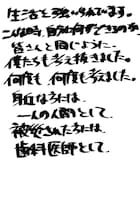 生活を強いられています。
こんな時、自分に何ができるのか
皆さんと同じように、
僕たちも考え抜きました。
何度も何度も考えました。
身近な方には、
一人の人間として、
被災された方には、
歯科医師として、